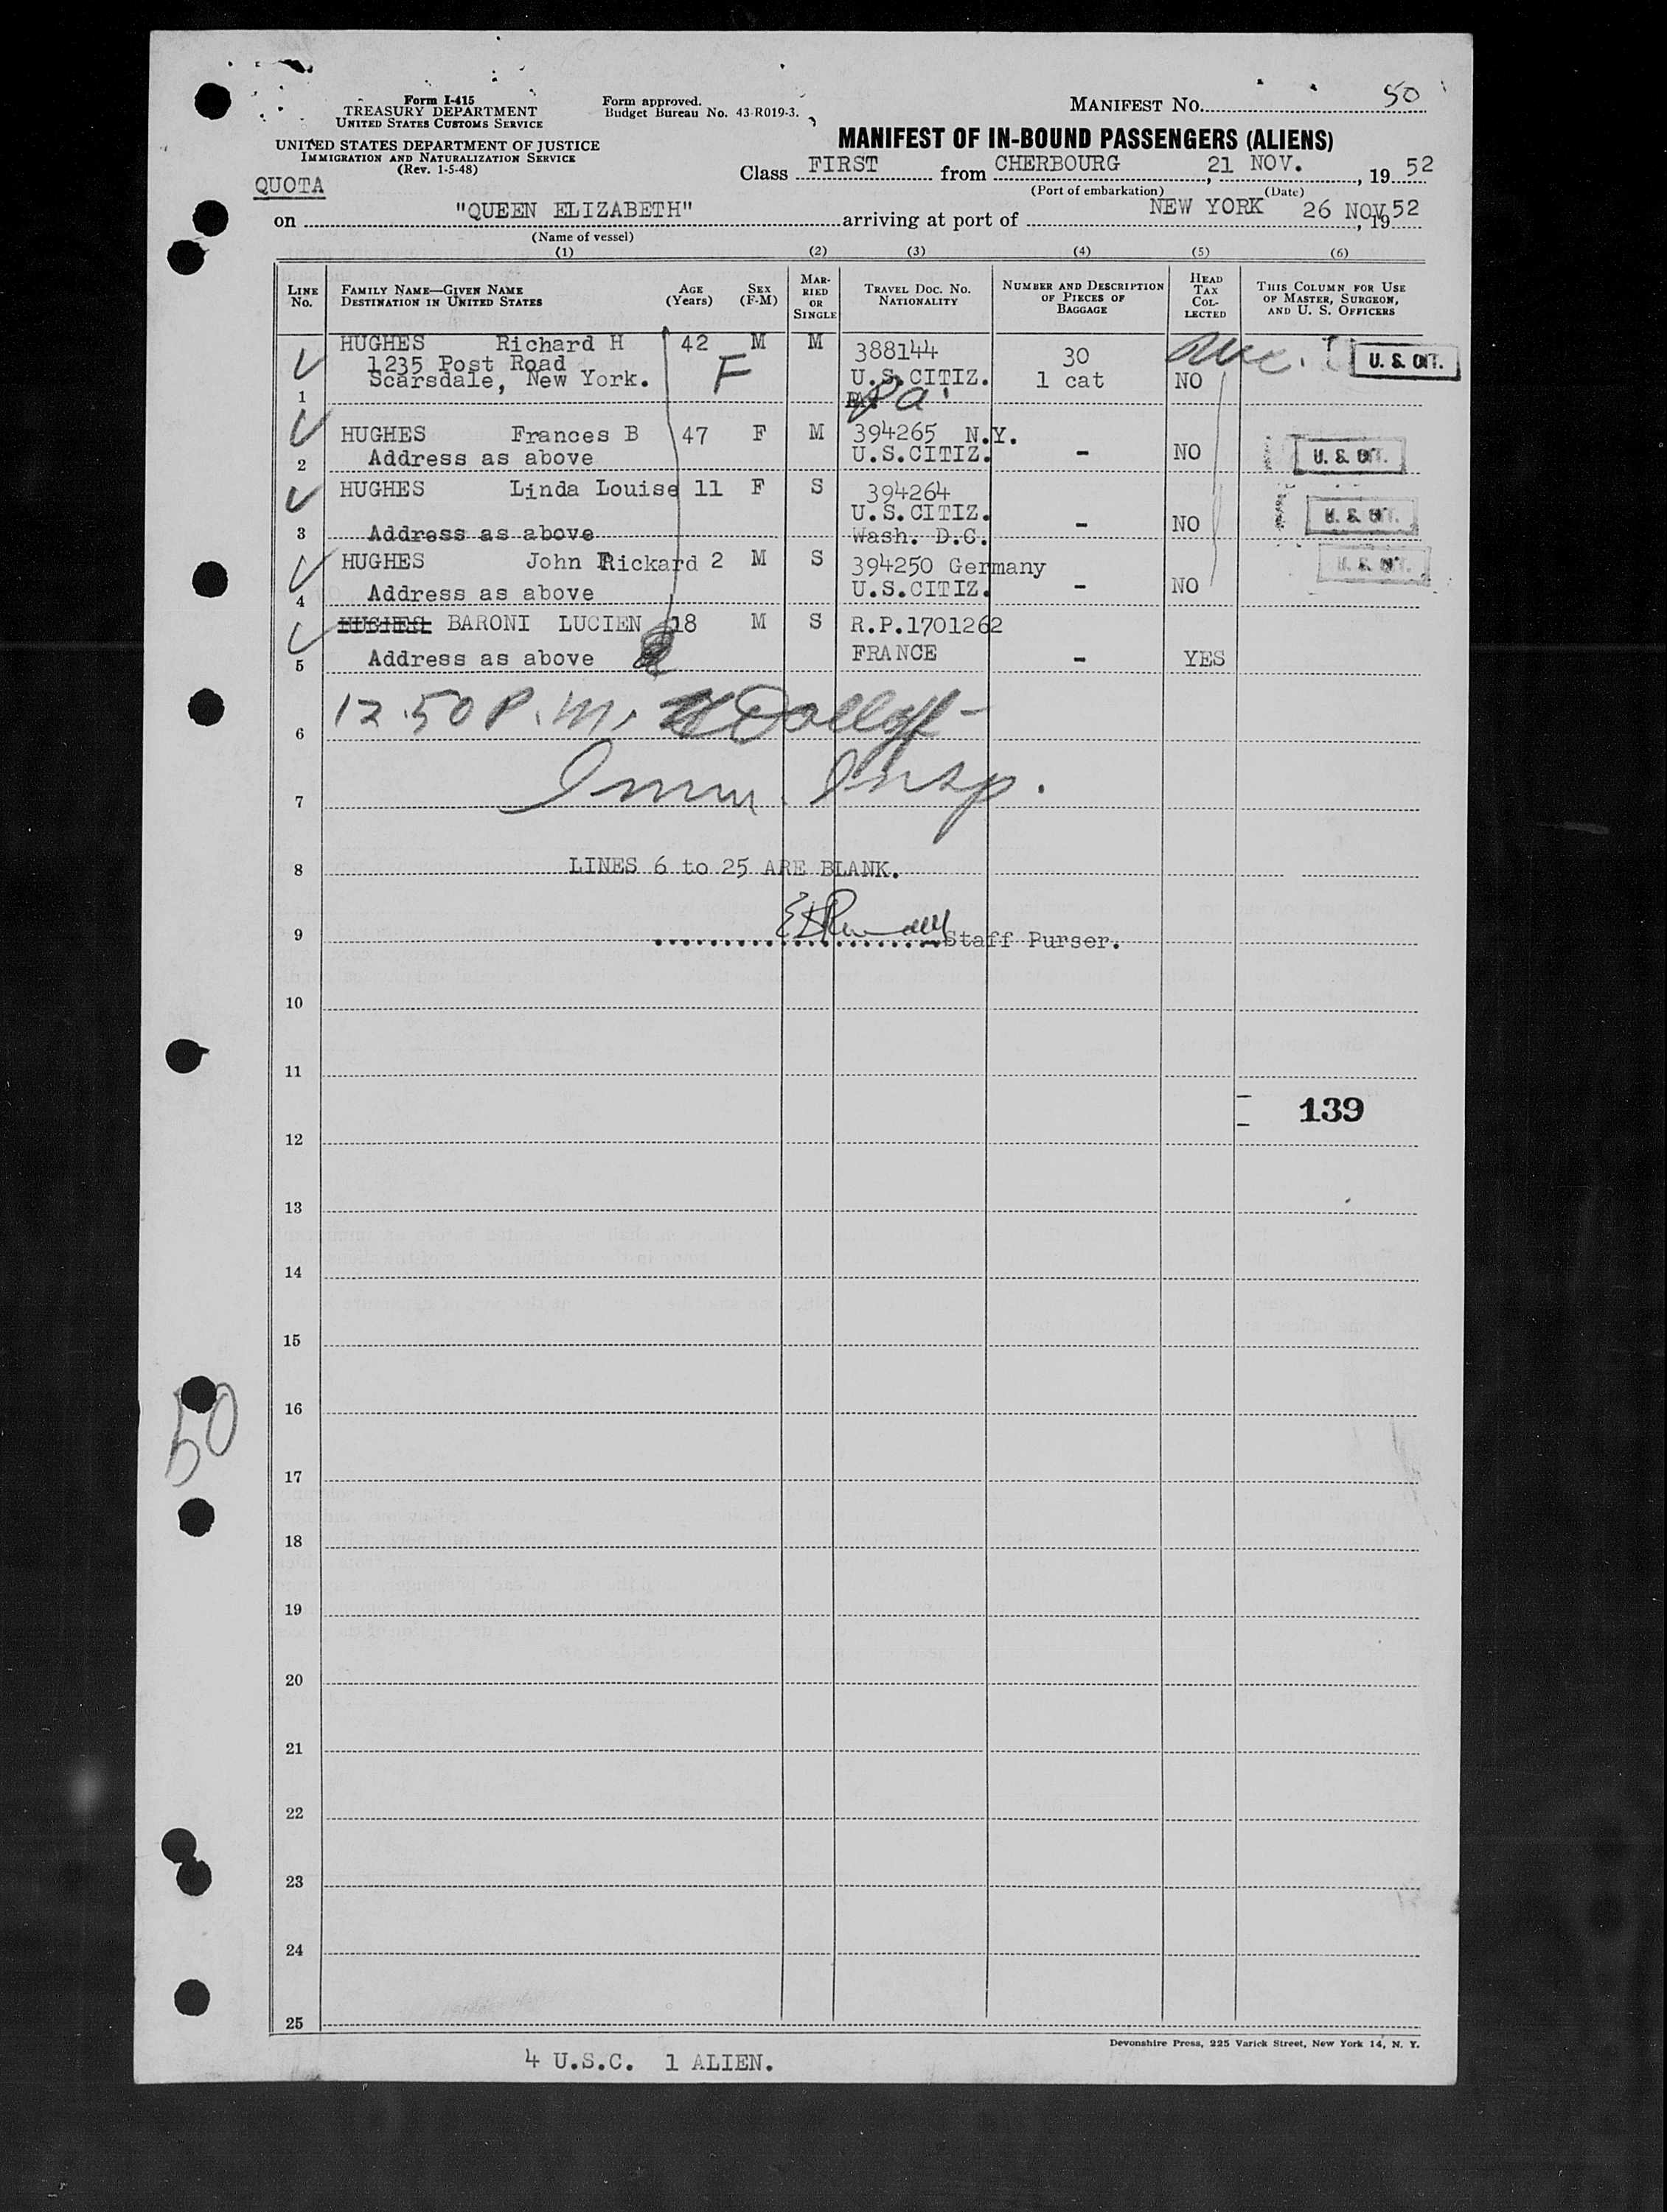 Form I-415
TREASURY DEPARTMENT
UNITED STATES CUSTOMS SERVICE
UNITED STATES DEPARTMENT OF JUSTICE
IMMIGRATION AND NATURALIZATION SERVICE
(Rev. 1-5-48)
Form approved.
Budget Bureau No. 43-R019-3.
MANIFEST No. 50
MANIFEST OF IN-BOUND PASSENGERS (ALIENS)
QUOTA
Class FIRST from CHERBOURG, 21 NOV., 1952
(Port of embarkation) (Date)
on "QUEEN ELIZABETH" arriving at port of NEW YORK 26 NOV, 1952
(Name of vessel)
(1) (2) (3) (4) (5) (6)
LINE No. FAMILY NAME—GIVEN NAME DESTINATION IN UNITED STATES AGE (Years) SEX (F-M) MARRIED OR SINGLE TRAVEL DOC. No. NATIONALITY NUMBER AND DESCRIPTION OF PIECES OF BAGGAGE HEAD TAX COLLECTED THIS COLUMN FOR USE OF MASTER, SURGEON, AND U. S. OFFICERS
HUGHES Richard H 42 M M 388144 30 U. S. CIT.
1235 Post Road F
Scarsdale, New York. U.S.CITIZ. 1 cat NO
1 PA. Pa.
HUGHES Frances B 47 F M 394265 N.Y.
2 Address as above U.S.CITIZ. - NO U. S. CIT.
HUGHES Linda Louise 11 F S 394264
U.S.CITIZ. - NO U. S. CIT.
3 Address as above Wash. D.C.
HUGHES John Rickard 2 M S 394250 Germany U. S. CIT.
4 Address as above U.S.CITIZ. - NO
HUGHES BARONI LUCIEN 18 M S R.P.1701262
5 Address as above FRANCE - YES
12.50 P.M.
6
Imm. Insp.
7
8 LINES 6 to 25 ARE BLANK.
9 Staff Purser.
10
11
139
12
13
14
15
16
50
17
18
19
20
21
22
23
24
25
Devonshire Press, 225 Varick Street, New York 14, N. Y.
4 U.S.C. 1 ALIEN.